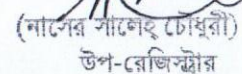 (নাসের সালেহ্ চৌধুরী)
উপ-রেজিস্ট্রার